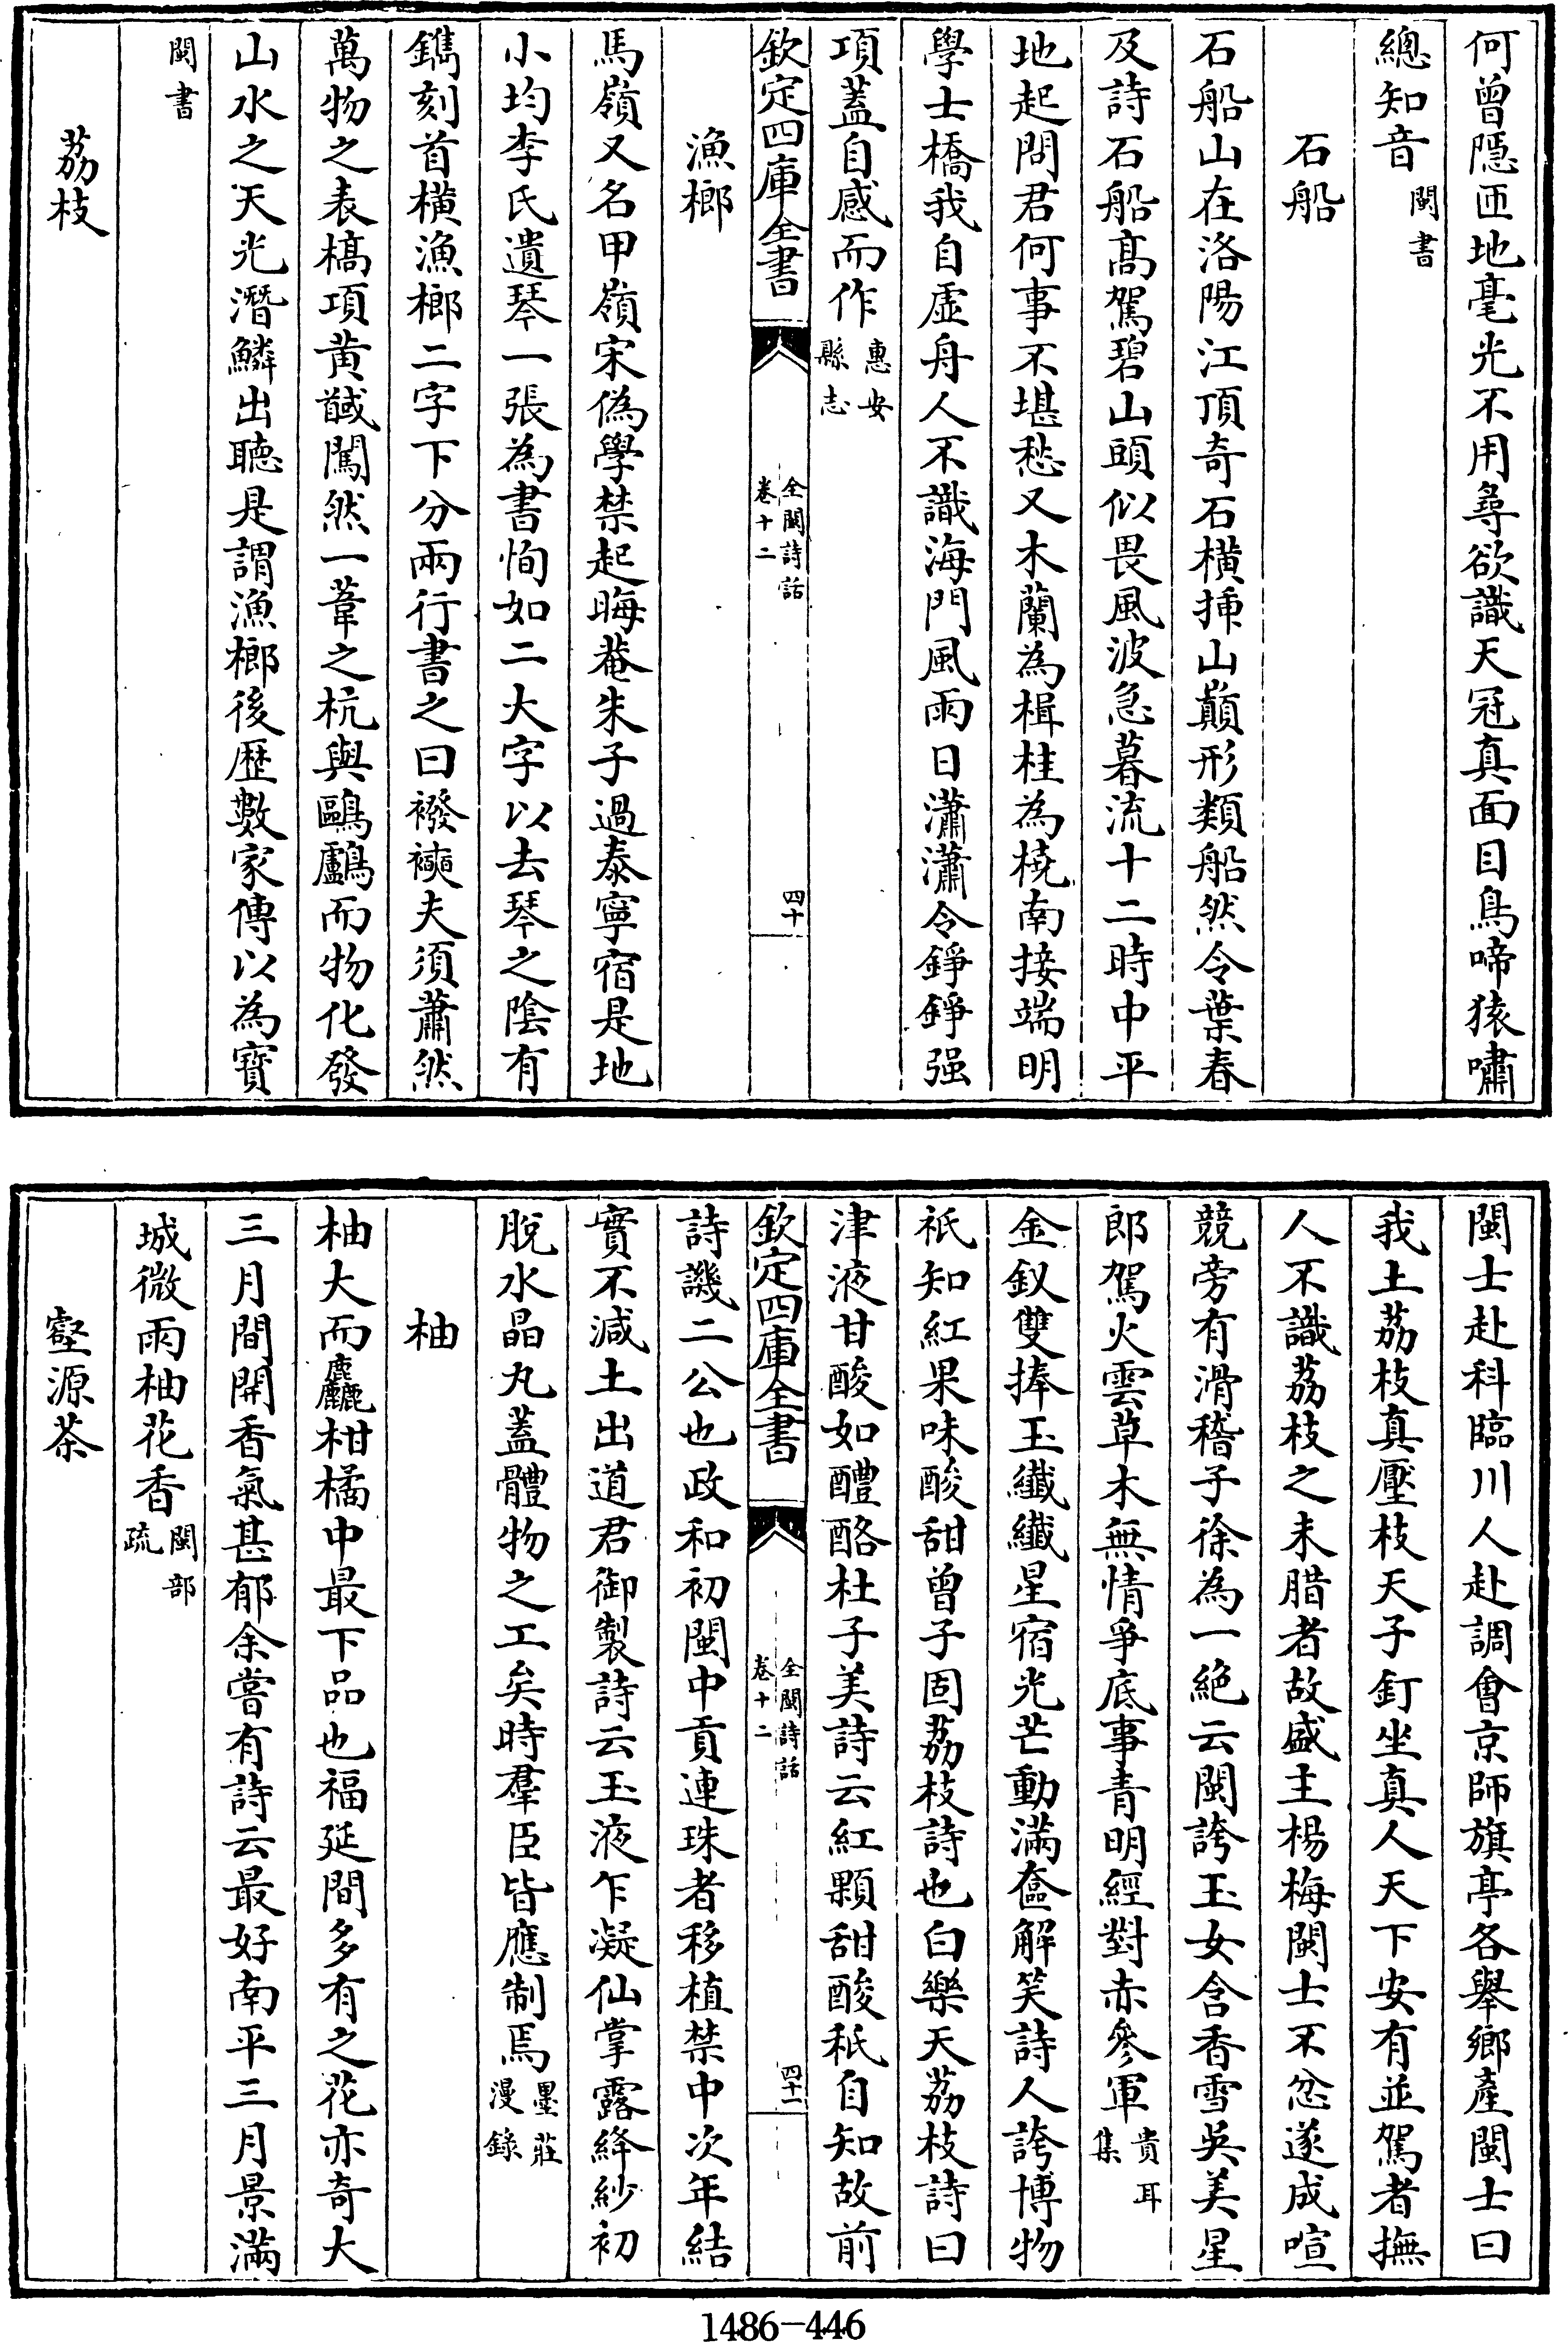 何曾隱匝地毫光不用尋欲識天冠真面目鳥啼猿嘯
總知音閩書
石船
石船山在洛陽江頂奇石橫揷山巔形類船然令葉春
及詩石船髙駕碧山頭似畏風波急暮流十二時中平
地起問君何事不堪愁又木蘭為楫桂為橈南接端明
學士橋我自虛舟人不識海門風雨日瀟瀟令錚錚强
項蓋自感而作惠安縣志
欽定四庫全書
全閩詩話
卷十二
四十
漁榔
馬嶺又名甲嶺宋偽學禁起晦菴朱子過泰寧宿是地
小均李氏遺琴一張為書恂如二大字以去琴之陰有
鐫刻首橫漁榔二字下分兩行書之曰襏襫夫須蕭然
萬物之表槁項黄馘闖然一葦之杭與鷗鸕而物化發
山水之天光潛鱗出聽是謂漁榔後歴數家傳以為寳
閩書
荔枝
閩士赴科臨川人赴調會京師旗亭各舉鄉產閩士曰
我土荔枝真壓枝天子釘坐真人天下安有並駕者撫
人不識荔枝之未腊者故盛主楊梅閩士不忿遂成喧
競旁有滑稽子徐為一絶云閩誇玉女含香雪吳美星
郎駕火雲草木無情爭底事青明經對赤參軍貴耳集
金釵雙捧玉纖纖星宿光芒動滿奩解笑詩人誇博物
祇知紅果味酸甜曾子固荔枝詩也白樂天荔枝詩曰
津液甘酸如醴酪杜子美詩云紅顆甜酸秖自知故前
欽定四庫全書
全閩詩話
卷十二
四十一
詩譏二公也政和初閩中貢連珠者移植禁中次年結
實不減土出道君御製詩云玉液乍凝仙掌露絳紗初
脫水晶丸蓋體物之工矣時羣臣皆應制焉墨莊漫錄
柚
柚大而麤柑橘中最下品也福延間多有之花亦奇大
三月間開香氣甚郁余嘗有詩云最好南平三月景滿
城微雨柚花香閩部疏
壑源茶
1486-446